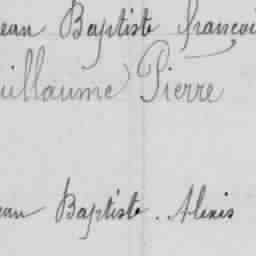 ean Baptiste françoi
uillaume Pierre
ean Baptiste. Alexis